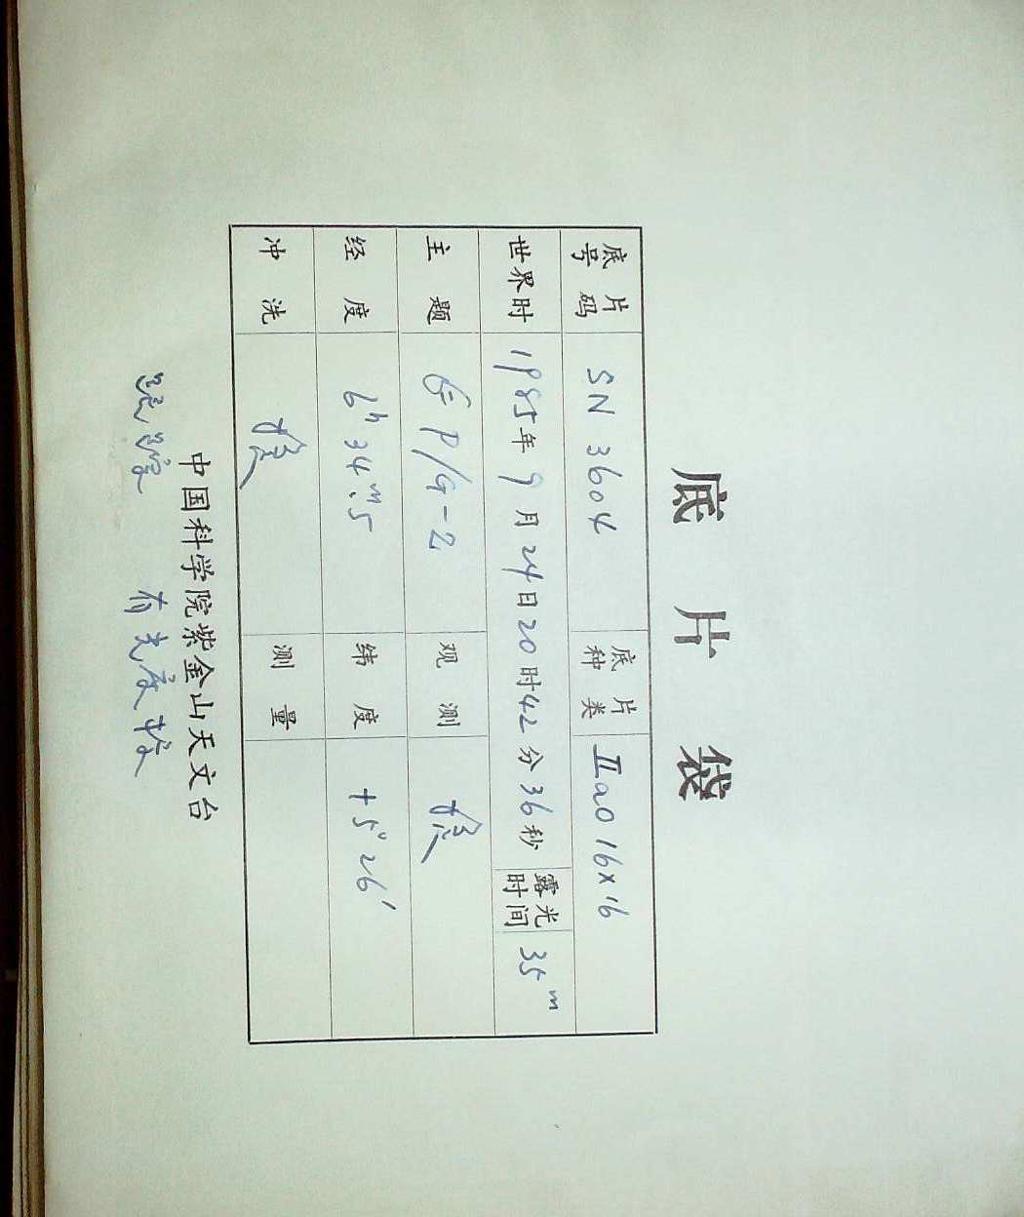 底片袋
底片号码 SN 3604 底片种类 IIaO 16×16
世界时 1985年9月24日20时42分36秒 露光时间 35m
主题 P/G-Z 观测
经度 6h 34m.5 纬度 +5° 26′
冲洗 测量
中国科学院紫金山天文台
跟踪 有光度